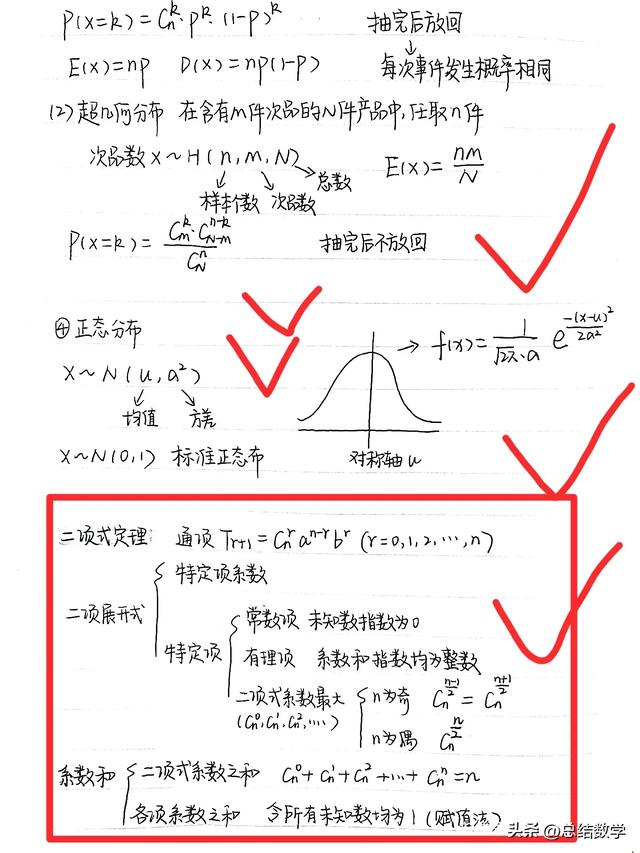 P(X=k)=Cₙᵏ·pᵏ·(1-p)ᵏ 抽完后放回
E(X)=np D(X)=np(1-p) 每次事件发生概率相同
(2)超几何分布 在含有M件次品的N件产品中,任取n件
次品数X~H(n,M,N) E(X)=nM/N
样本个数 次品数 总数
P(X=k)=C_M^k·C_{N-M}^{n-k}/C_N^n 抽完后不放回
④正态分布 f(x)=1/(√2π·a) e^{-(x-u)²/2a²}
X~N(u,a²)
均值 方差
X~N(0,1) 标准正态布 对称轴u
二项式定理 通项 T_{r+1}=C_n^r a^{n-r} b^r (r=0,1,2,…,n)
二项展开式
特定项系数
特定项
常数项 未知数指数为0
有理项 系数和指数均为整数
二项式系数最大 n为奇 C_n^{(n-1)/2}=C_n^{(n+1)/2}
(C_n^0,C_n^1,C_n^2,…) n为偶 C_n^{n/2}
系数和
二项式系数之和 C_n^0+C_n^1+C_n^2+…+C_n^n=n
各项系数之和 令所有未知数均为1(赋值法)
头条@总结数学